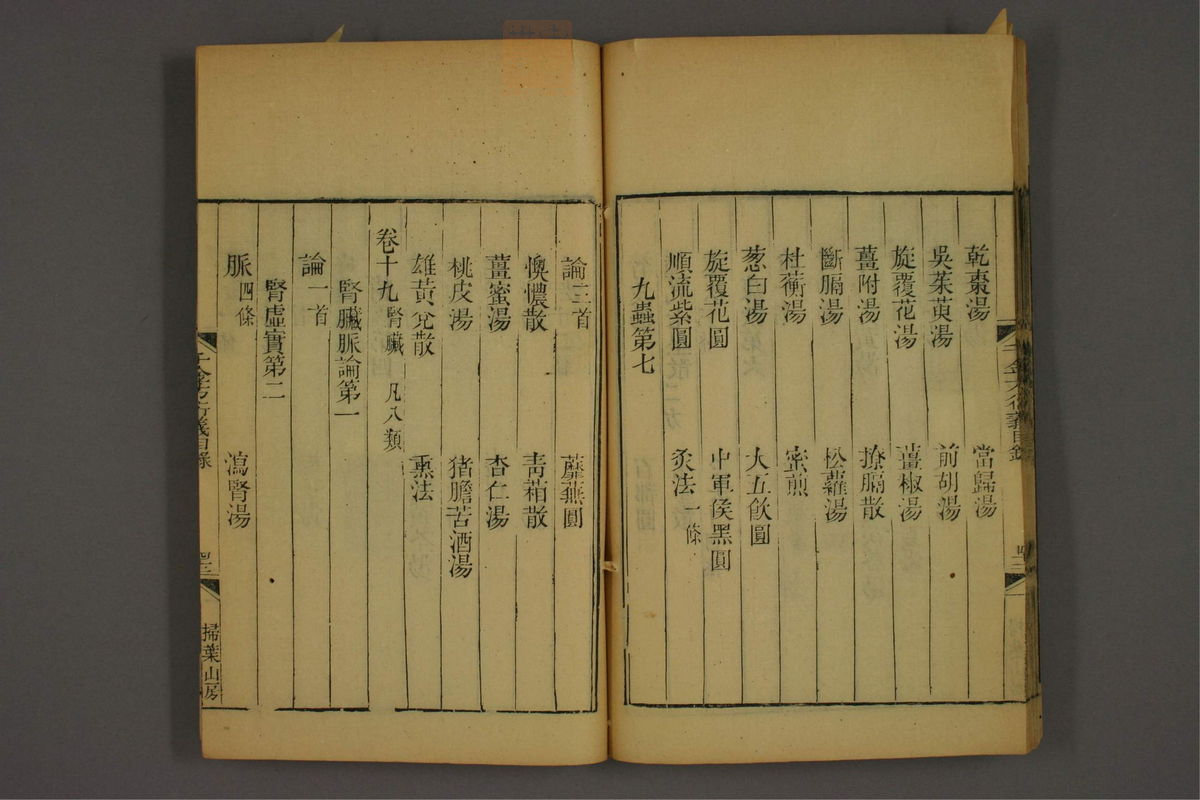 乾棗湯 當歸湯
吳茱萸湯 前胡湯
旋覆花湯 薑椒湯
薑附湯 撩膈散
斷膈湯 松蘿湯
杜蘅湯 蜜煎
葱白湯 大五飲圓
旋覆花圓 中軍侯黑圓
順流紫圓 灸法一條
九蟲第七
論三首 蘼蕪圓
懊憹散 靑葙散
薑蜜湯 杏仁湯
桃皮湯 猪膽苦酒湯
雄黃兌散 熏法
卷十九 腎臟 凡八類
腎臟脈論第一
論一首
腎虛實第二
脈四條 瀉腎湯
千金方衍義目錄
掃葉山房